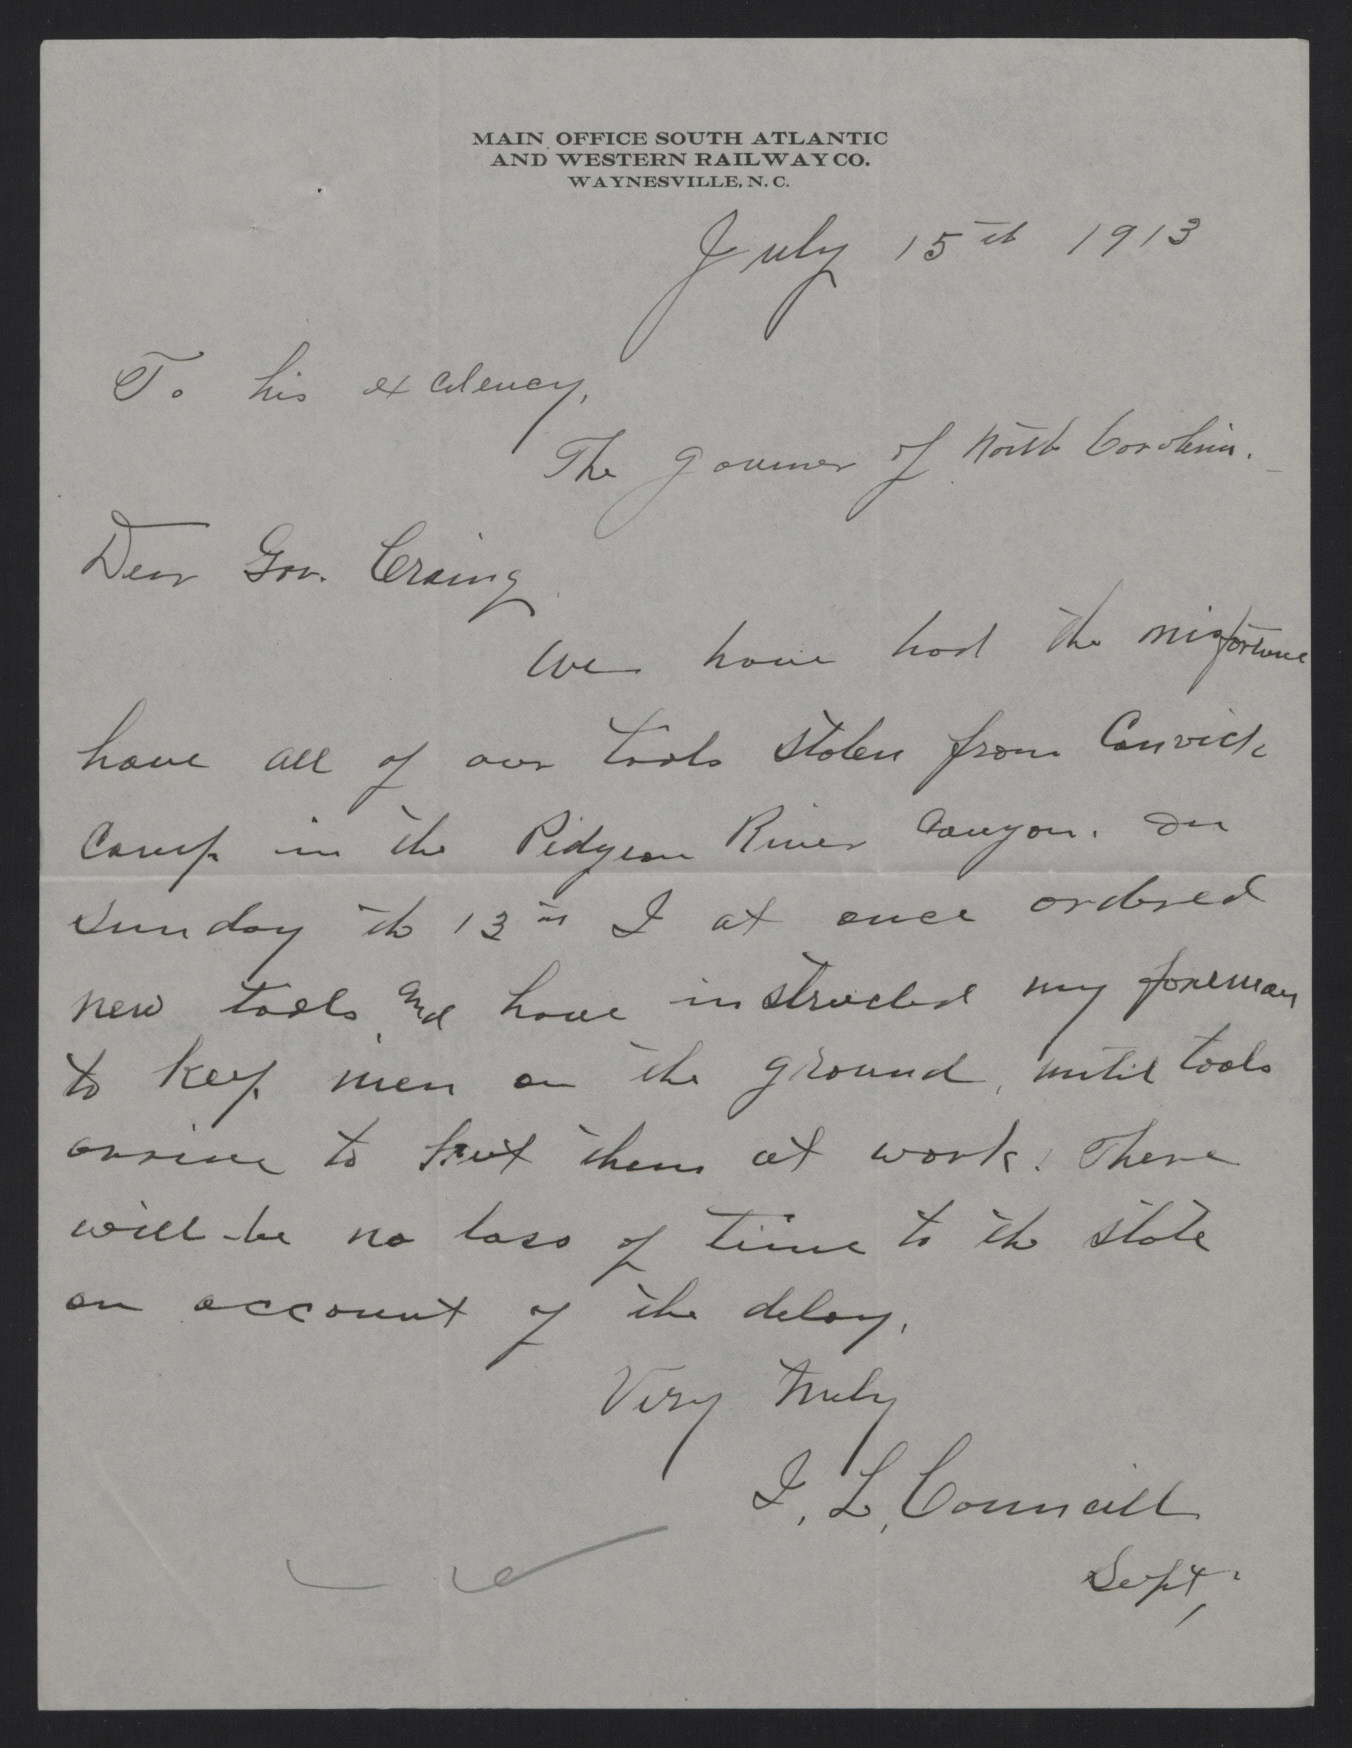 MAIN OFFICE SOUTH ATLANTIC
AND WESTERN RAILWAY CO.
WAYNESVILLE, N. C.
July 15th 1913
To his exclency,
The govurner of North Carolina.
Dear Gov. Craing
We have had the misfortune
have all of our tools stolen from Convick
Camp in the Pidgeon River Canyon. On
Sunday th 13th I at once ordered
new tools, and have instructed my foreman
to keep men on the ground, until tools
arrive to put them at work. There
will be no loss of time to th state
on account of the delay.
Very truly
J. L. Councill
Supt,